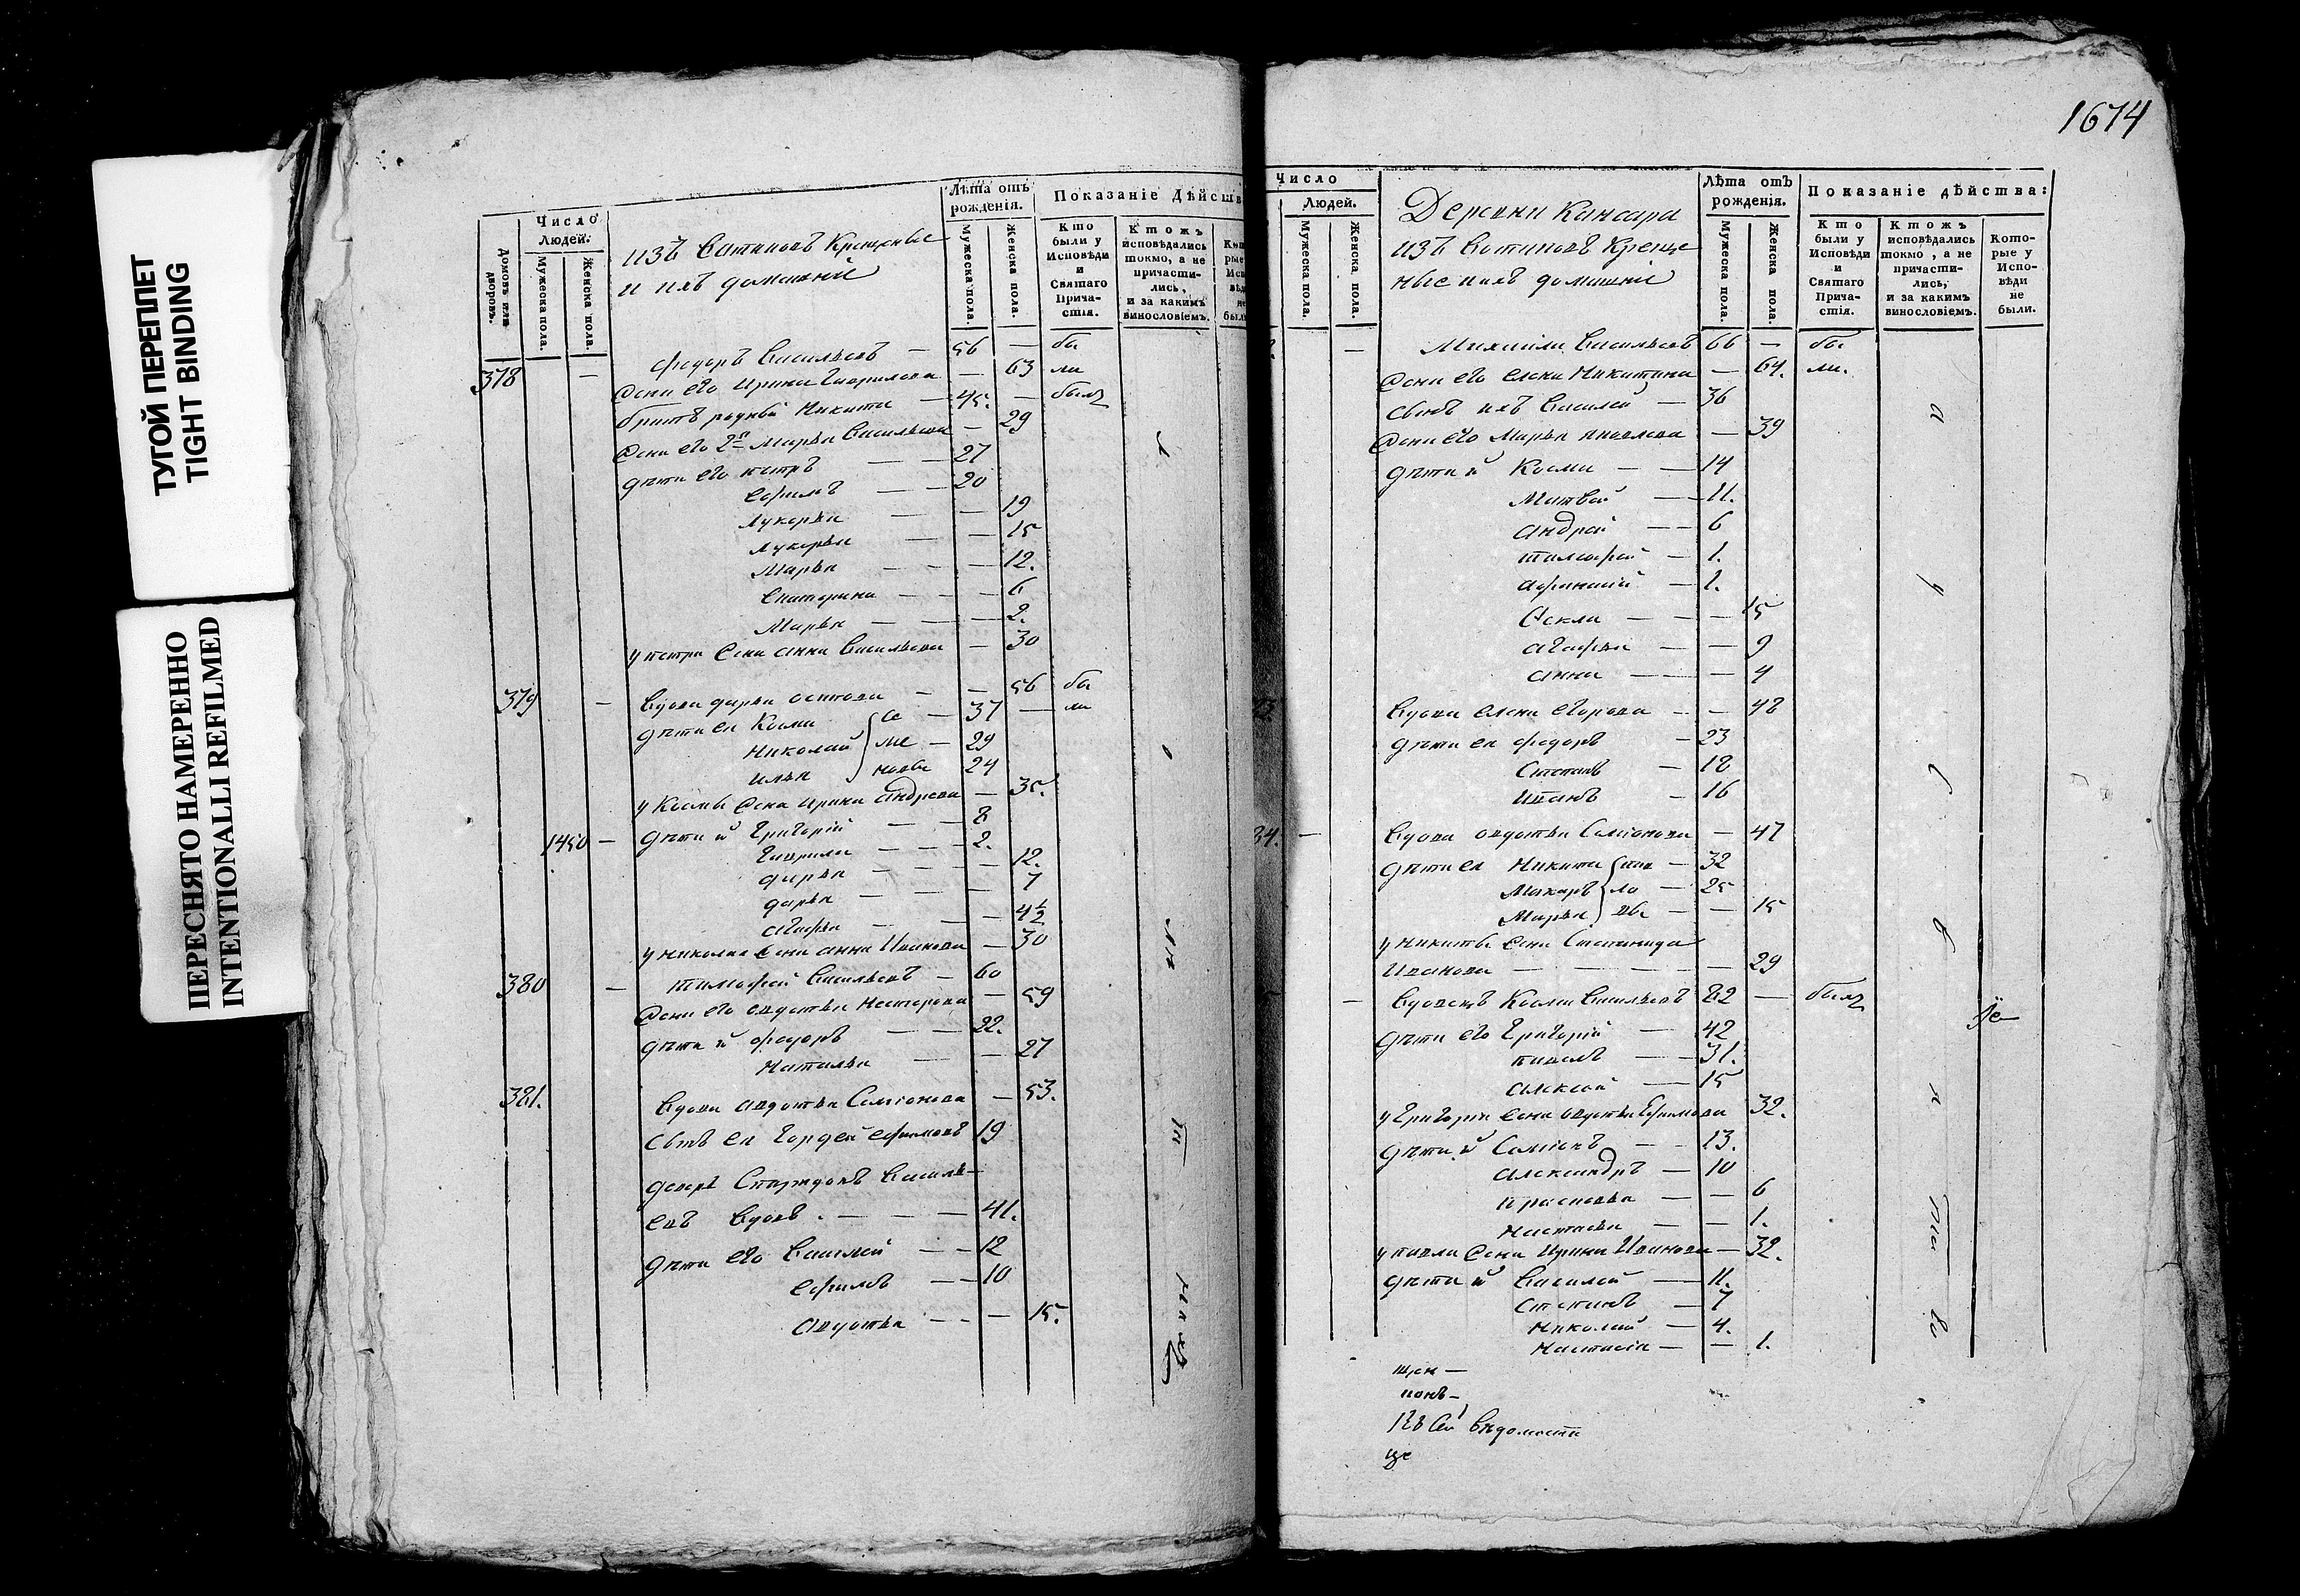 ТУГОЙ ПЕРЕПЛЕТ
TIGHT BINDING
ПЕРЕСНЯТО НАМЕРЕННО
INTENTIONALLI REFILMED
Домовъ или дворовъ.
Число
Людей.
Мужеска пола.
Женска пола.
изъ Вотяковъ Крещеные
и ихъ домашніе
Лѣта отъ рожденія.
Мужеска пола.
Женска пола.
Показаніе Дѣйств
Кто были у Исповѣди и Святаго Причастія.
Ктожъ исповѣдались токмо, а не причастились, и за какимъ винословіемъ.
378 — Федоръ Васильевъ — 56 — бы
Жена его Ирина Гаврилова — 63 ли
братъ родный Никита — 45. — былъ
Жена его 2я Марья Васильева — 29
дѣти его петръ — — 27
Ефимъ — — 20
Лукерья — — 19
Лукерья — — 15
Марья — — — 12.
Екатерина — — — 6
Марья — — — 2.
у петра Жена Анна Васильева — 30
379 — Вдова дарья осипова — — 56 бы
дѣти ея Косма Се — 37 — ли
Николай ме — 29
Илья новы 24
у Космы Жена Ирина Андреева — 35.
1450 — дѣти их Григорій — — 8
Гаврила — — — 2.
дарья — — — 12.
дарья — — — 7
Агафья — — — 4½
у Николая Жена Анна Иванова — 30
380 — тимофей Васильевъ — 60
Жена его авдотья Нестерова — 59
дѣти их федоръ — — 22.
Наталья — — 27
381. Вдова авдотья Самсонова — 53.
Сынъ ея Гордей Ефимовъ 19
деверь Спиридонъ Василь—
евъ вдовъ. — — — 41.
дѣти его Василей — — 12
Ефимъ — — 10
Авдотья — — — 15.
1674
Число
Людей.
Мужеска пола.
Женска пола.
Деревни Кансара
изъ Вотяковъ Креще
ные и ихъ домашніе
Лѣта отъ рожденія.
Мужеска пола.
Женска пола.
Показаніе дѣйства:
Кто были у Исповѣди и Святаго Причастія.
Ктожъ исповѣдались токмо, а не причастились, и за какимъ винословіемъ.
Которые у Исповѣди не были.
— Михаила Васильевъ 66 — бы
Жена его елена Никитина — 64. ли.
Сынъ ихъ Василей — 36
Жена его Марья яковлева — 39
дѣти их Косма — — 14
Матвей — — 11.
Андрей — — 6
тимофей — 1.
Афанасий — 1.
Фекла — — — 15
Агафья — — 9
Анна — — — 4
Вдова елена егорова — — 48
дѣти ея федоръ — 23
Степанъ — 18
Иванъ — 16
34. — Вдова авдотья Самсонова — 47
дѣти ея Никита пав — 32
Макаръ ло — 25
Марья вы — — 15
у Никиты Жена Степанида
Иванова — — — — 29
— Вдовецъ Косма Васильевъ 82 — былъ
дѣти его Григорій — 42
павелъ — — 31.
Алексей — 15
у Григорія Жена авдотья Ефимова 32.
дѣти их Самсонъ — — 13.
Александръ — 10
прасковья — — 6
Настасья — — 1.
у павла Жена Ирина Иванова — 32.
дѣти их Василей — 11.
Степанъ — 7
Николай — 4.
Настасія — — 1.
Къ сей вѣдомости